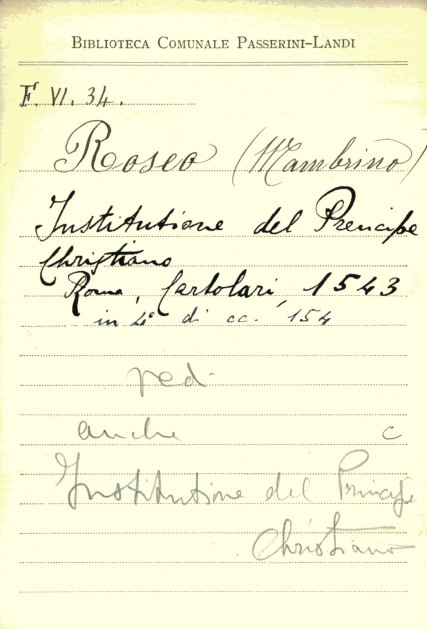 BIBLIOTECA COMUNALE PASSERINI-LANDI
F. VI. 34.
Roseo (Mambrino)
Institutione del Prencipe
Christiano
Roma, Cartolari, 1543
in 4° di cc. 154
ved.
anche c
Institutione del Principe
Christiano